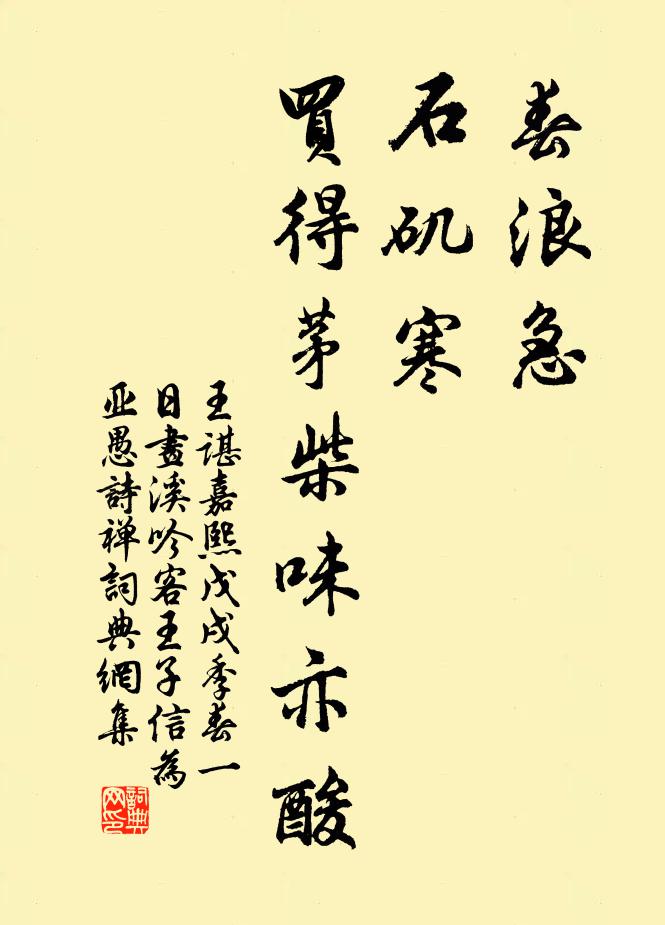 春浪急
石矶寒
買得茅柴味亦酸
王諶嘉熙戊戌季春一
日畫溪吟客王子信為
亚愚詩禅詞典網集
詞典
网印